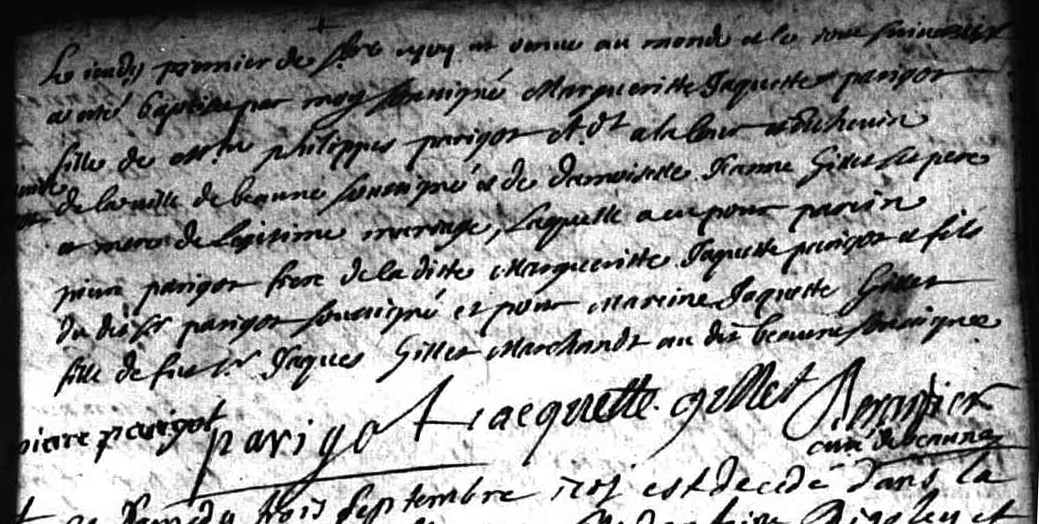 Le jeudy premier de 7bre 1701 est venue au monde et le jour suivant
a esté baptisée par moy soussigné Margueritte Jaquette parigot
fille de Mr philippes parigot et a la Cour
de la ville de beaune soussigné et de damoiselle Jeanne Gillet ses pere
et mere de legitime mariage, laquelle a eu pour parein
pierre parigot frere de la ditte Margueritte Jaquette parigot et fils
du dit Sr parigot soussigné et pour Mareine Jaquette Gillet
fille de feu Sr Jaques Gillet Marchandt au dit beaune soussignee
pierre parigot parigot Jacquette gillet
curé de beaune
Samedy trois Septembre 1701 est decedé dans la